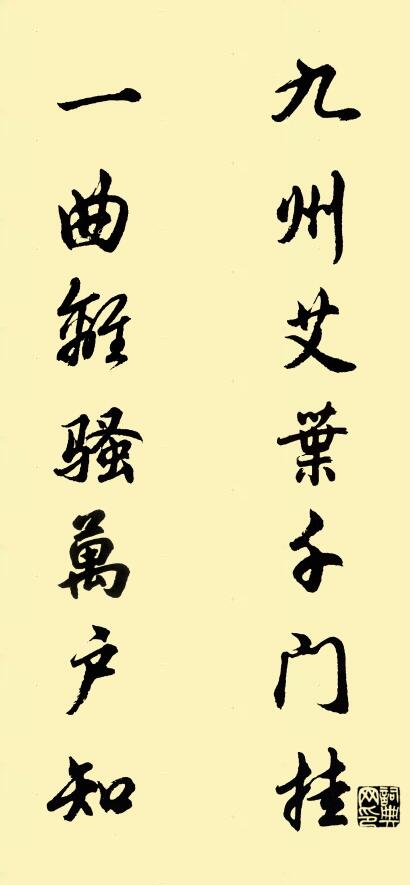 九州艾葉千门挂
一曲離骚萬户知
詞典网印